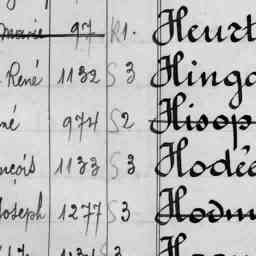 marie 97 R1. Heurt
René 1132 S3 Hinga
né 974 S2 Hisop
nçois 1133 S3 Hodée
Joseph 1277 S3